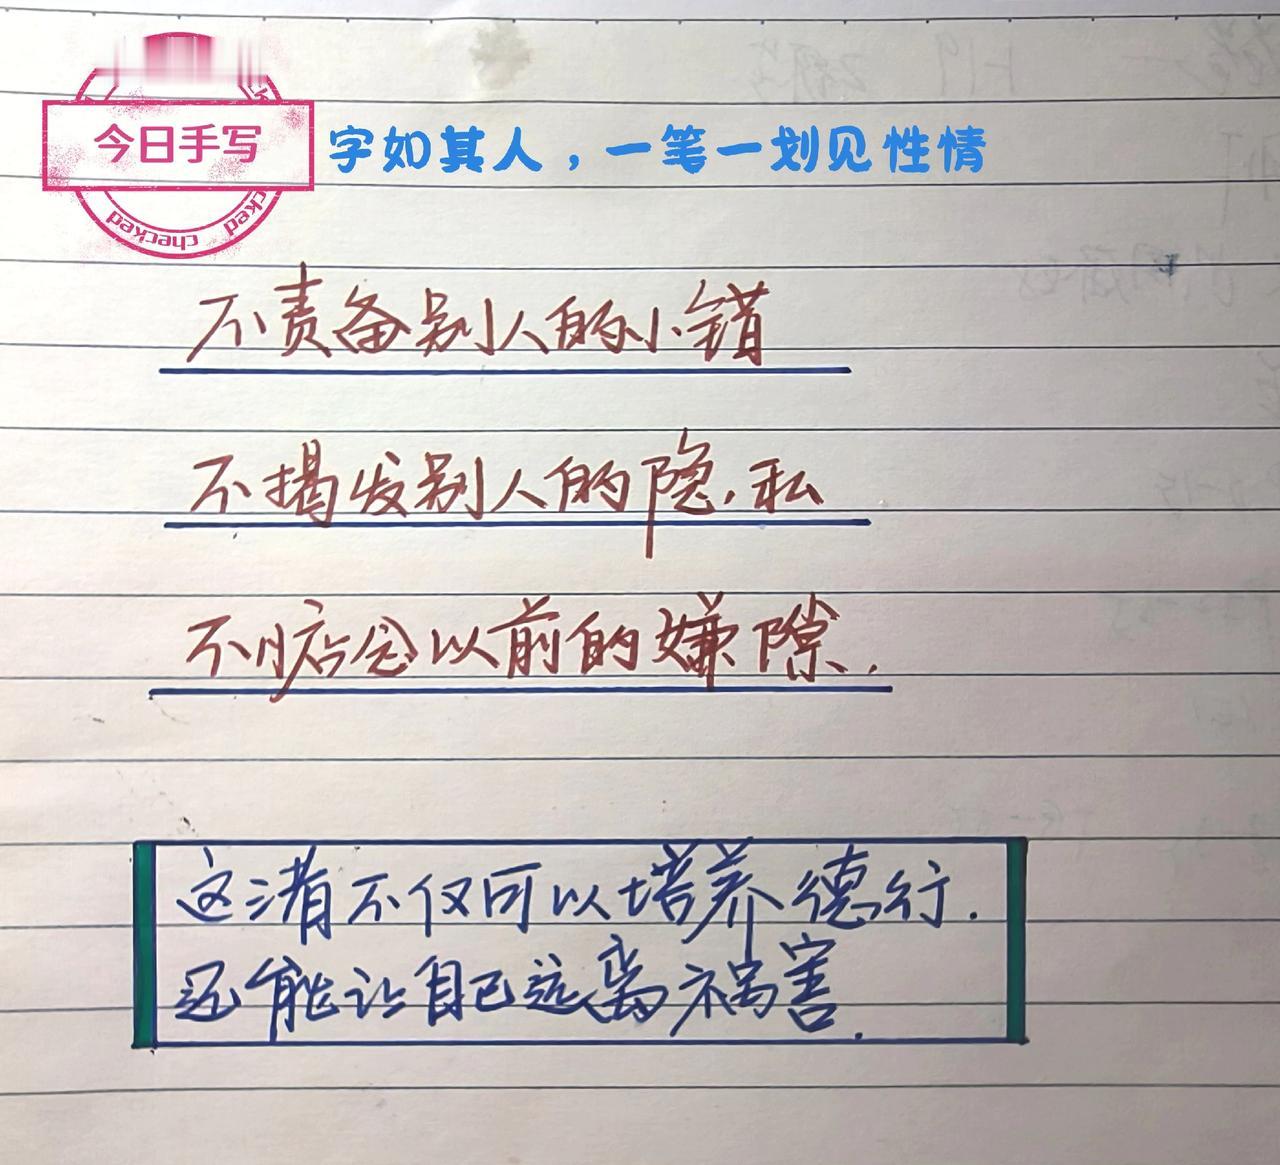 今日手写
checked
cked
字如其人，一笔一划见性情
不责备别人的小错
不揭发别人的隐私
不惦念以前的嫌隙.
这三者不仅可以培养德行.
还能让自己远离祸害.